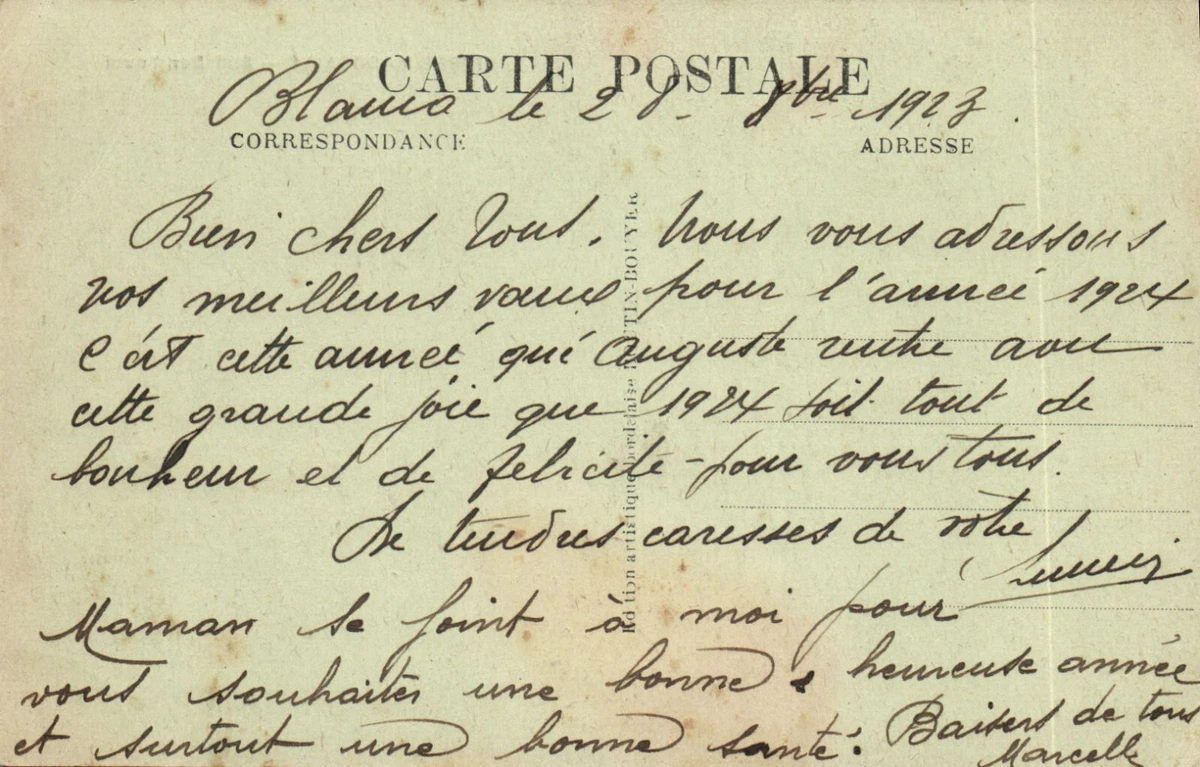 CARTE POSTALE
le 28 - Xbre 1923.
CORRESPONDANCE
ADRESSE
Bien chers Tous. Nous vous adressons
nos meilleurs vœux pour l'année 1924
C'est cette année qué Auguste rentre avec
cette grande joie que 1924 soit tout de
bonheur et de félicité - pour vous tous.
De tendres caresses de votre
Maman se joint à moi pour
vous souhaiter une bonne & heureuse année
et surtout une bonne santé. Baisers de tous
Marcelle
Edition artistique bordelaise